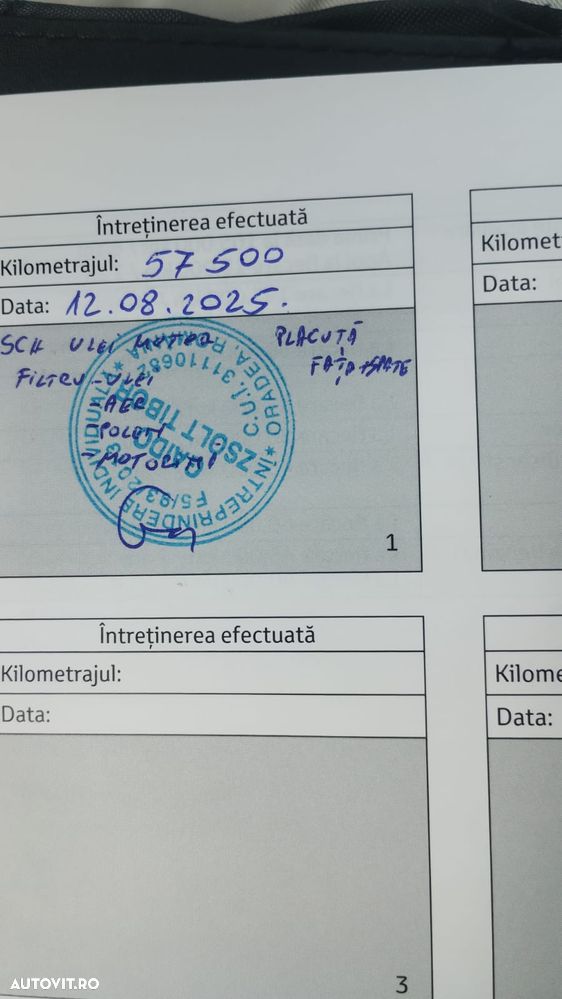 Întreținerea efectuată
Kilometrajul: 57 500
Data: 12.08.2025.
SCH ULEI MOTOR PLACUȚĂ
FILTRU-ULEI FAȚA+SPATE
-AER
-POLEN
-MOTORINĂ
ÎNTREPRINDERE INDIVIDUALĂ * ORADEA, ROMÂNIA *
C.U.I. 31110682
ZSOLT TIBOR
1
Kilomet
Data:
Întreținerea efectuată
Kilometrajul:
Data:
3
Kilome
Data:
AUTOVIT.RO